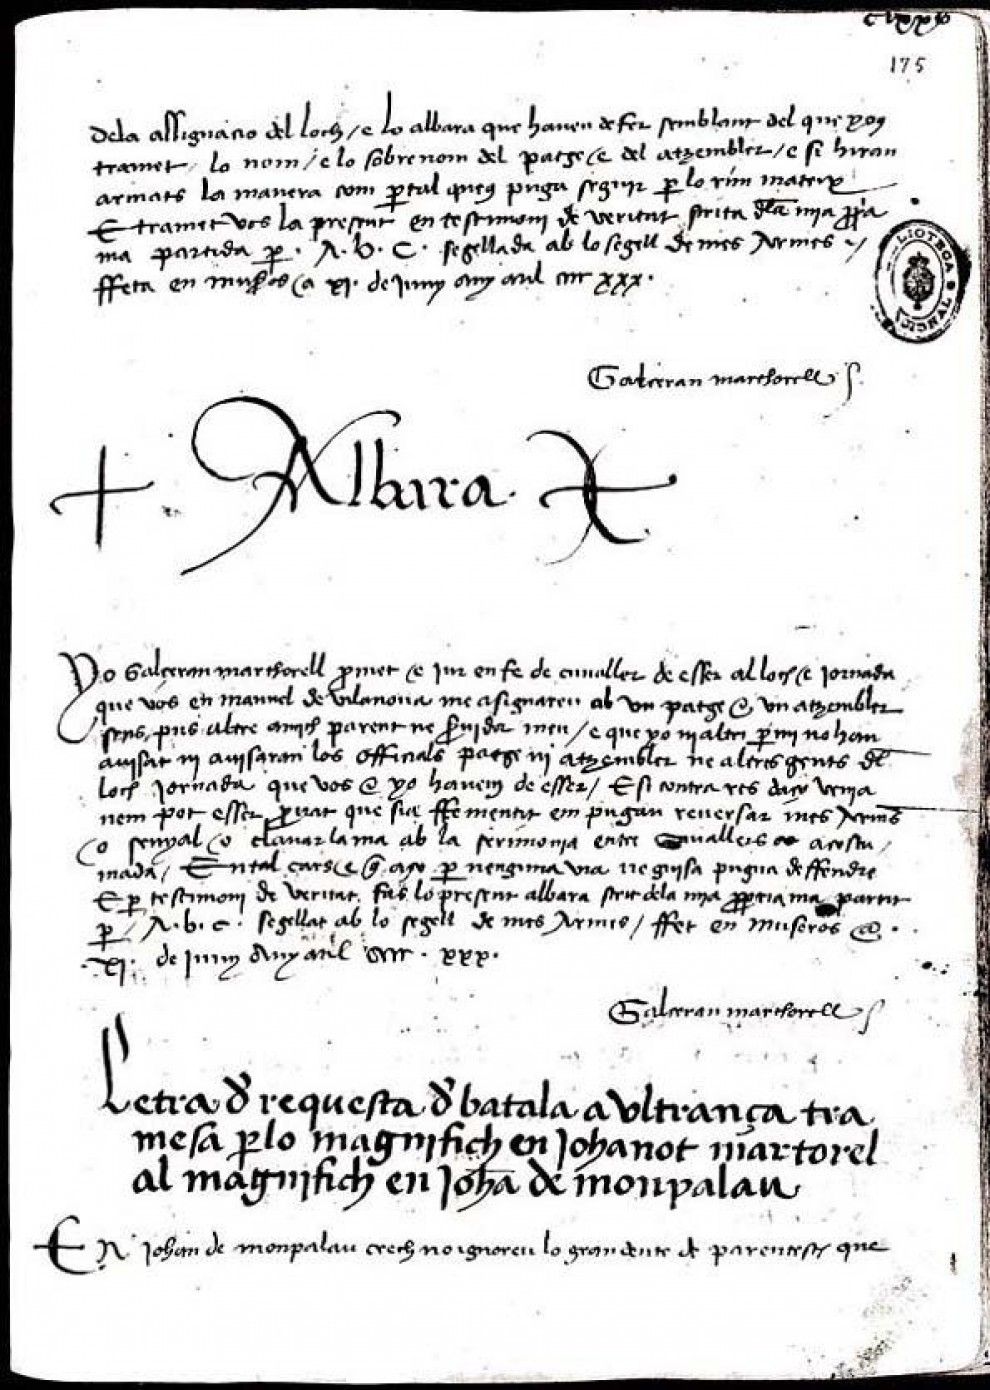 clxxv
175
dela assignacio del loch / e lo albara que haveu de fer semblant del que yous
tramet / lo nom / e lo sobrenom del patge & del atzembler / e si hiran
armats la manera com p tal queus puga seguir p lo rim mateix
E tramet vos la present en testimoni de veritat scrita dla mia ppia
ma partida p . A . b . C . segellada ab lo segell de mes Armes
ffeta en museros a xi . de Juny Any mil cccc xxx .
Galceran marthorell
BIBLIOTECA NACIONAL
Albara .
Yo Galceran marthorell pmet & jur en fe de cavaller de esser al loch & jornada
que vos en manuel de vilanova me asignareu ab un patge & un atzembler
sens pus altre amich parent ne servidor meu / e que yo ni altri p mi no han
avisat ni avisaran los officials patge ni atzembler ne altres gents dl
loch jornada que vos & yo havem de esser / E si contra res daço venia
nem pot esser pvat que sia ffementit em pugau reversar mes Armes
o senyal o clavar la ma ab la serimonia entre Cavallers acostu /
mada / En tal cars & q aço p nenguna via ne guisa puga deffendre
E p testimoni de veritat fas lo present albara scrit dela mia ppria ma partit
p / A . b . c . segellat ab lo segell de mes Armes / ffet en museros a .
. xi . de Juny Any mil cccc . xxx .
Galceran marthorell
Letra d requesta d batala a ultrança tra
mesa p lo magnifich en Johanot martorel
al magnifich en Joha de monpalau
En Johan de monpalau crech no ignoreu lo gran deute de parentesch que